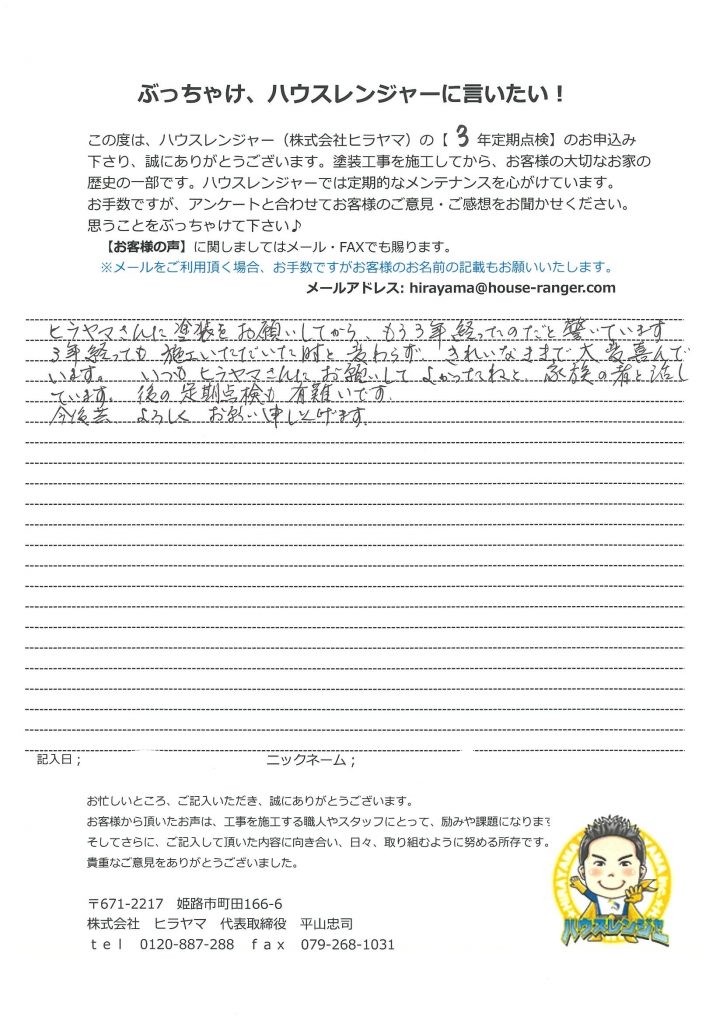 ぶっちゃけ、ハウスレンジャーに言いたい！
この度は、ハウスレンジャー（株式会社ヒラヤマ）の【 3 年定期点検】のお申込み
下さり、誠にありがとうございます。塗装工事を施工してから、お客様の大切なお家の
歴史の一部です。ハウスレンジャーでは定期的なメンテナンスを心がけています。
お手数ですが、アンケートと合わせてお客様のご意見・ご感想をお聞かせください。
思うことをぶっちゃけて下さい♪
【お客様の声】に関しましてはメール・FAXでも賜ります。
※メールをご利用頂く場合、お手数ですがお客様のお名前の記載もお願いいたします。
メールアドレス: hirayama@house-ranger.com
ヒラヤマさんに塗装をお願いしてから、もう3年経ったのだと驚いています
3年経っても施工いただいた時と変わらず、きれいなままで大変喜んで
います。 いつもヒラヤマさんにお願いしてよかったねと 家族の者と話し
ています。 後の定期点検も有難いです。
今後共 よろしく お願い申し上げます。
記入日；
ニックネーム；
お忙しいところ、ご記入いただき、誠にありがとうございます。
お客様から頂いたお声は、工事を施工する職人やスタッフにとって、励みや課題になります
そしてさらに、ご記入して頂いた内容に向き合い、日々、取り組むように努める所存です。
貴重なご意見をありがとうございました。
〒671-2217 姫路市町田166-6
株式会社 ヒラヤマ 代表取締役 平山忠司
ｔｅｌ 0120-887-288 ｆａｘ 079-268-1031
ハウスレンジャー